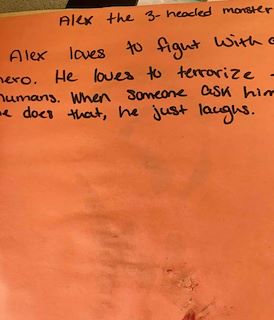 Alex the 3-headed monster
Alex loves to fight with
hero. He loves to terrorize
humans. When someone ask him
he does that, he just laughs.